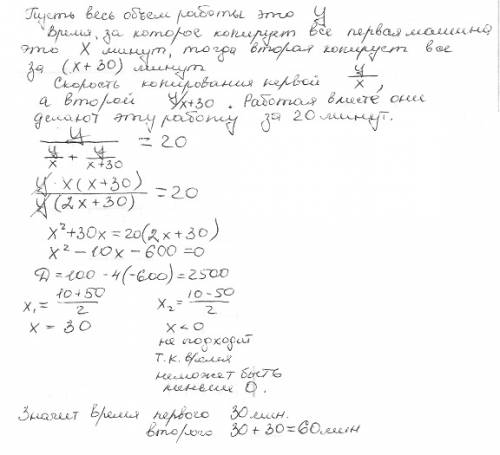 Пусть весь объем работы это y
Время, за которое копирует все первая машина
это x минут, тогда вторая копирует все
за (x+30) минут
Скорость копирования первой y/x,
а второй y/x+30. Работая вместе, они
делают эту работу за 20 минут.
y / (y/x + y/(x+30)) = 20
y · x(x+30) / y(2x+30) = 20
x²+30x=20(2x+30)
x²-10x-600=0
Д=100-4(-600)=2500
x₁=(10+50)/2 x₂=(10-50)/2
x=30 x<0
не подходит
т.к. время
неможет быть
меньше 0.
Значит время первого 30 мин.
второго 30+30=60 мин